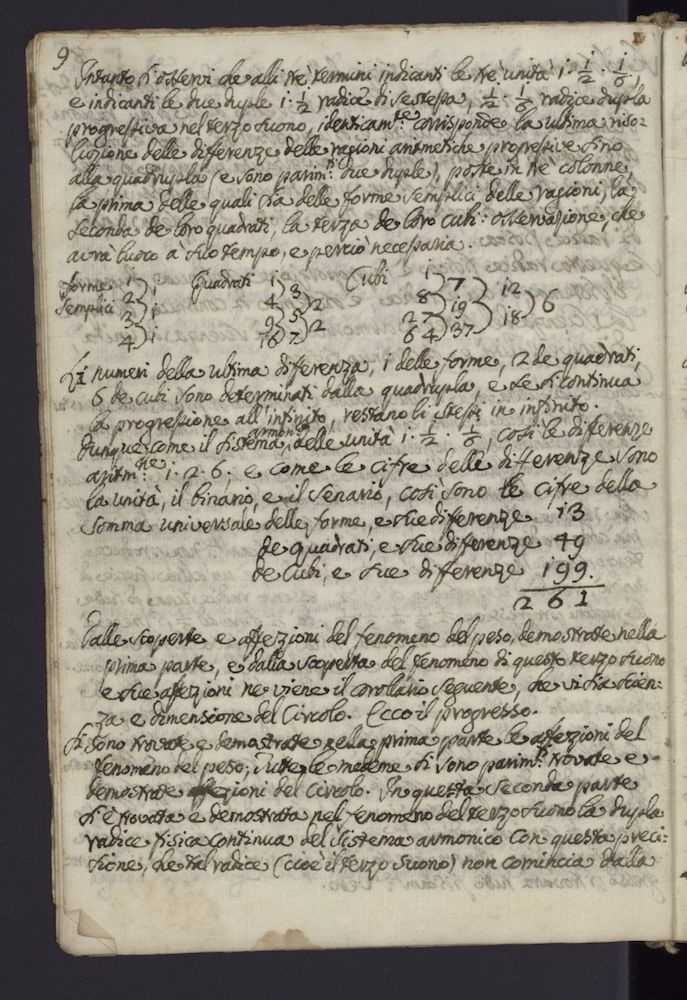 9
Intanto si osservi che alli trè termini indicanti le trè unità 1 · 1/2 · 1/6,
e indicanti le due duple 1 · 1/2 radice di se stessa, 1/2 · 1/6 radice dupla
progressiva nel terzo suono, identicam.te corrisponde la ultima riso:
luzione delle differenze delle ragioni aritmetiche progressive sino
alla quadrupla (e sono parim.ti due duple), poste in trè colonne,
la prima delle quali sia delle forme semplici delle ragioni, la
seconda de loro quadrati, la terza de loro cubi: osservazione, che
avrà luoco à suo tempo, e perciò necessaria.
forme 1 1 Quadrati 1 3 Cubi 1 7 12
semplici 2 1 4 5 2 8 19 18 6
3 1 9 7 2 27 37
4 16 64
Li numeri della ultima differenza, 1 delle forme, 2 de quadrati,
6 de cubi sono determinati dalla quadrupla, e se si continua
la progressione all'infinito, restano li stessi in infinito.
Dunque come il sistema armonico delle unità 1 · 1/2 · 1/6, così le differenze
aritm.che 1 · 2 · 6: e come le cifre delle differenze sono
la unità, il binario, e il senario, così sono le cifre della
somma universale delle forme, e sue differenze 13
de quadrati, e sue differenze 49
de Cubi, e sue differenze 199.
261
Dalle scoperte e affezioni del fenomeno del peso, demostrate nella
prima parte, e dalla scoperta del fenomeno di questo terzo suono
e sue affezioni ne viene il corollario seguente, che vi sia scien:
za e dimensione del Circolo. Ecco il progresso.
Si sono trovate e demostrate nella prima parte le affezioni del
fenomeno del peso; Tutte le medeme si sono parim.ti trovate e
demostrate affezioni del Circolo. In questa seconda parte
si è trovata e demostrata nel fenomeno del terzo suono la dupla
radice fisica continua del sistema armonico con questa preci:
sione, che tal radice (cioè il terzo suono) non comincia dalla